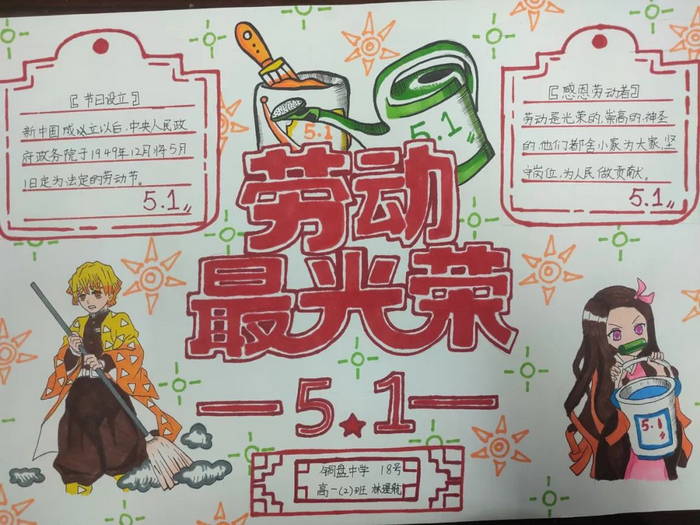 5.1
5.1
〖节日设立〗
新中国成立以后,中央人民政
府政务院于1949年12月将5月
1日定为法定的劳动节。
5.1
〖感恩劳动者〗
劳动是光荣的,崇高的,神圣
的,他们都舍小家为大家,坚
守岗位,为人民做贡献。
5.1
劳动
最光荣
5.1
5.1
铜盘中学 18号
高一(2)班